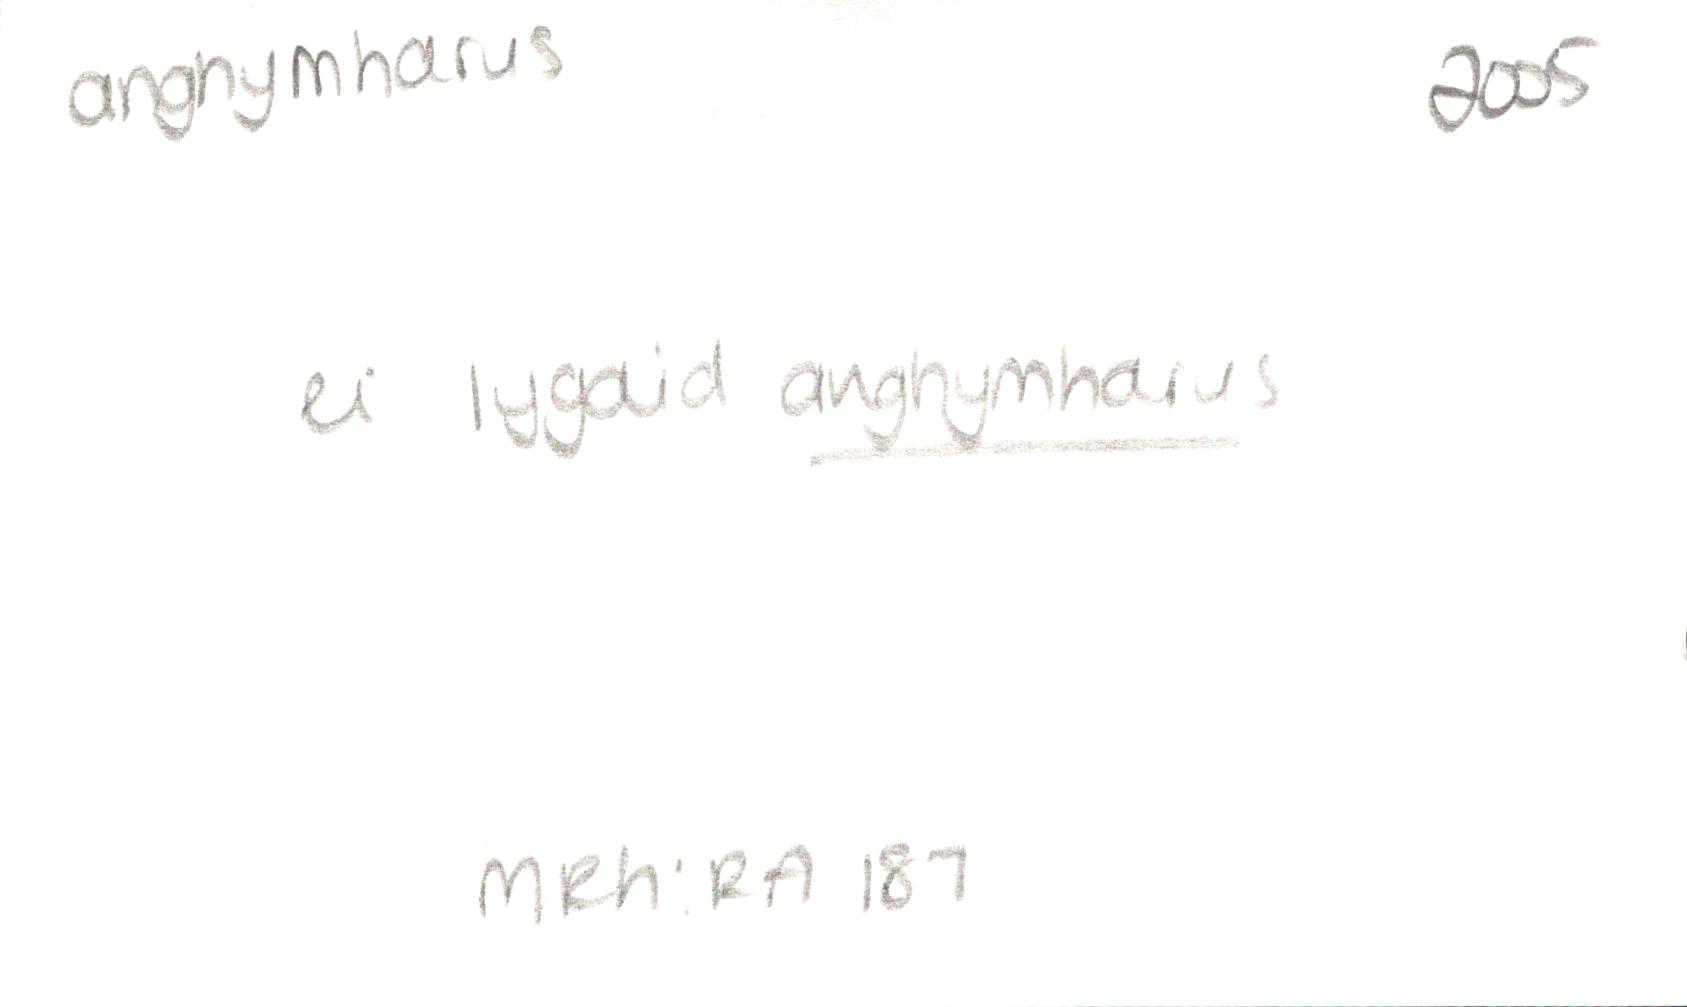 anghymharus 2005
ei lygaid anghymharus
MRh: RA 187